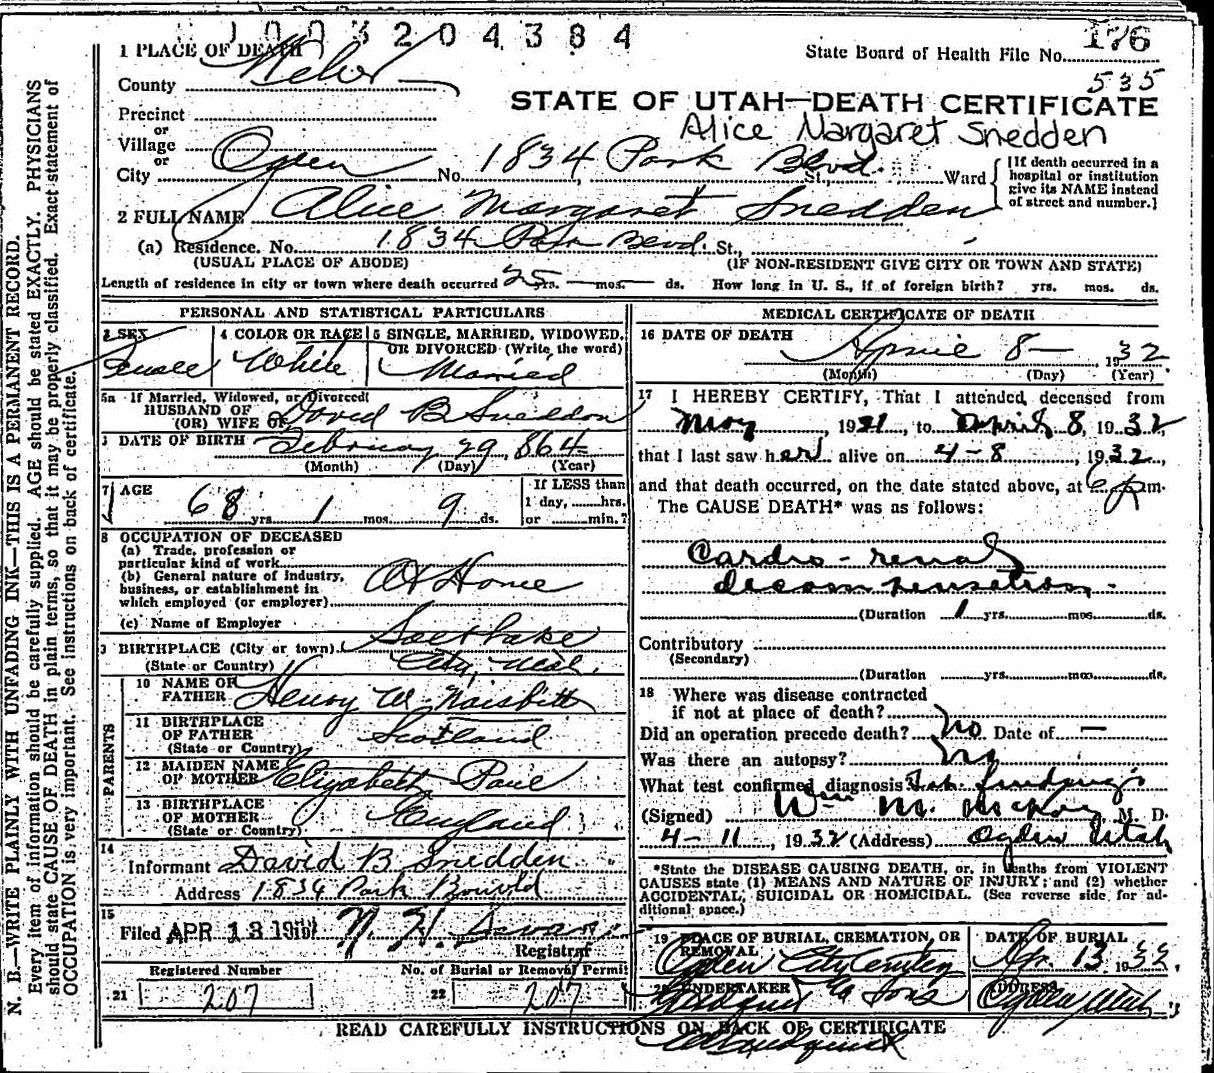 1003204384
1 PLACE OF DEATH
State Board of Health File No. 176
535
County Weber
STATE OF UTAH—DEATH CERTIFICATE
Precinct
or
Village
or
Alice Margaret Snedden
City Ogden No. 1834 Park Blvd. St., Ward
[If death occurred in a hospital or institution give its NAME instead of street and number.]
2 FULL NAME Alice Margaret Snedden
(a) Residence. No. 1834 Park Blvd. St.,
(USUAL PLACE OF ABODE) (IF NON-RESIDENT GIVE CITY OR TOWN AND STATE)
Length of residence in city or town where death occurred 25 yrs. — mos. — ds. How long in U. S., if of foreign birth? yrs. mos. ds.
PERSONAL AND STATISTICAL PARTICULARS
3 SEX Female
4 COLOR OR RACE White
5 SINGLE, MARRIED, WIDOWED, OR DIVORCED (Write the word) Married
5a If Married, Widowed, or Divorced
HUSBAND OF
(OR) WIFE OF David B Sneddon
DATE OF BIRTH February 29, 864
(Month) (Day) (Year)
7 AGE 68 yrs. 1 mos. 9 ds.
If LESS than 1 day, ......hrs. or ......min.?
8 OCCUPATION OF DECEASED
(a) Trade, profession or particular kind of work
(b) General nature of industry, business, or establishment in which employed (or employer)
At Home
(c) Name of Employer
BIRTHPLACE (City or town) Salt Lake
(State or Country) City, Utah.
PARENTS
10 NAME OF FATHER Henry W. Naisbitt
11 BIRTHPLACE OF FATHER (State or Country) Scotland
12 MAIDEN NAME OF MOTHER Elizabeth Paul
13 BIRTHPLACE OF MOTHER (State or Country) England
14
Informant David B Snedden
Address 1834 Park Boulvd
15
Filed APR 13 19
Registrar
Registered Number
21 207
No. of Burial or Removal Permit
22 207
MEDICAL CERTIFICATE OF DEATH
16 DATE OF DEATH
April 8— 1932
(Month) (Day) (Year)
17 I HEREBY CERTIFY, That I attended deceased from
May, 1921, to April 8, 1932,
that I last saw her alive on 4-8, 1932,
and that death occurred, on the date stated above, at 6 p.m.
The CAUSE DEATH* was as follows:
Cardio-renal
decompensation.
(Duration 1 yrs. mos. ds.
Contributory
(Secondary)
(Duration yrs. mos. ds.
18 Where was disease contracted
if not at place of death?
Did an operation precede death? No Date of —
Was there an autopsy? No
What test confirmed diagnosis findings
(Signed) Wm M. McKay M. D.
4-11, 1932 (Address) Ogden Utah
*State the DISEASE CAUSING DEATH, or, in deaths from VIOLENT CAUSES state (1) MEANS AND NATURE OF INJURY; and (2) whether ACCIDENTAL, SUICIDAL OR HOMICIDAL. (See reverse side for additional space.)
19 PLACE OF BURIAL, CREMATION, OR REMOVAL
Ogden City Cemetery
DATE OF BURIAL
Apr. 13 1932.
UNDERTAKER
Lindquist & Sons
ADDRESS
Ogden Utah
READ CAREFULLY INSTRUCTIONS ON BACK OF CERTIFICATE
N. B.—WRITE PLAINLY WITH UNFADING INK—THIS IS A PERMANENT RECORD.
Every item of information should be carefully supplied. AGE should be stated EXACTLY. PHYSICIANS
should state CAUSE OF DEATH in plain terms, so that it may be properly classified. Exact statement of
OCCUPATION is very important. See instructions on back of certificate.